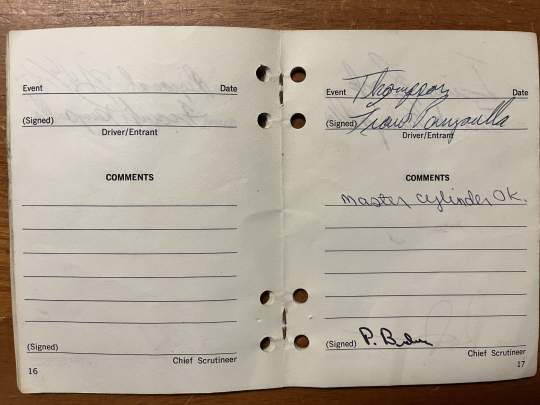 Event Date
(Signed)
Driver/Entrant
COMMENTS
(Signed)
Chief Scrutineer
16
Event Thompson Date
(Signed)
Driver/Entrant
COMMENTS
Master cylinder OK.
(Signed) P.
Chief Scrutineer
17